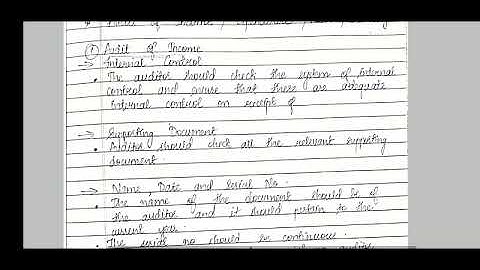 ① Audit of Income
→ Internal Control
• The auditor should check the system of internal
control and ensure that there are adequate
internal control on receipt of
→ Supporting Document
• Auditor should check all the relevant supporting
document.
→ Name, Date and Serial No.
• The name of the document should be of
the auditor and it should pertain to the
current year.
• The serial no should be continuous.